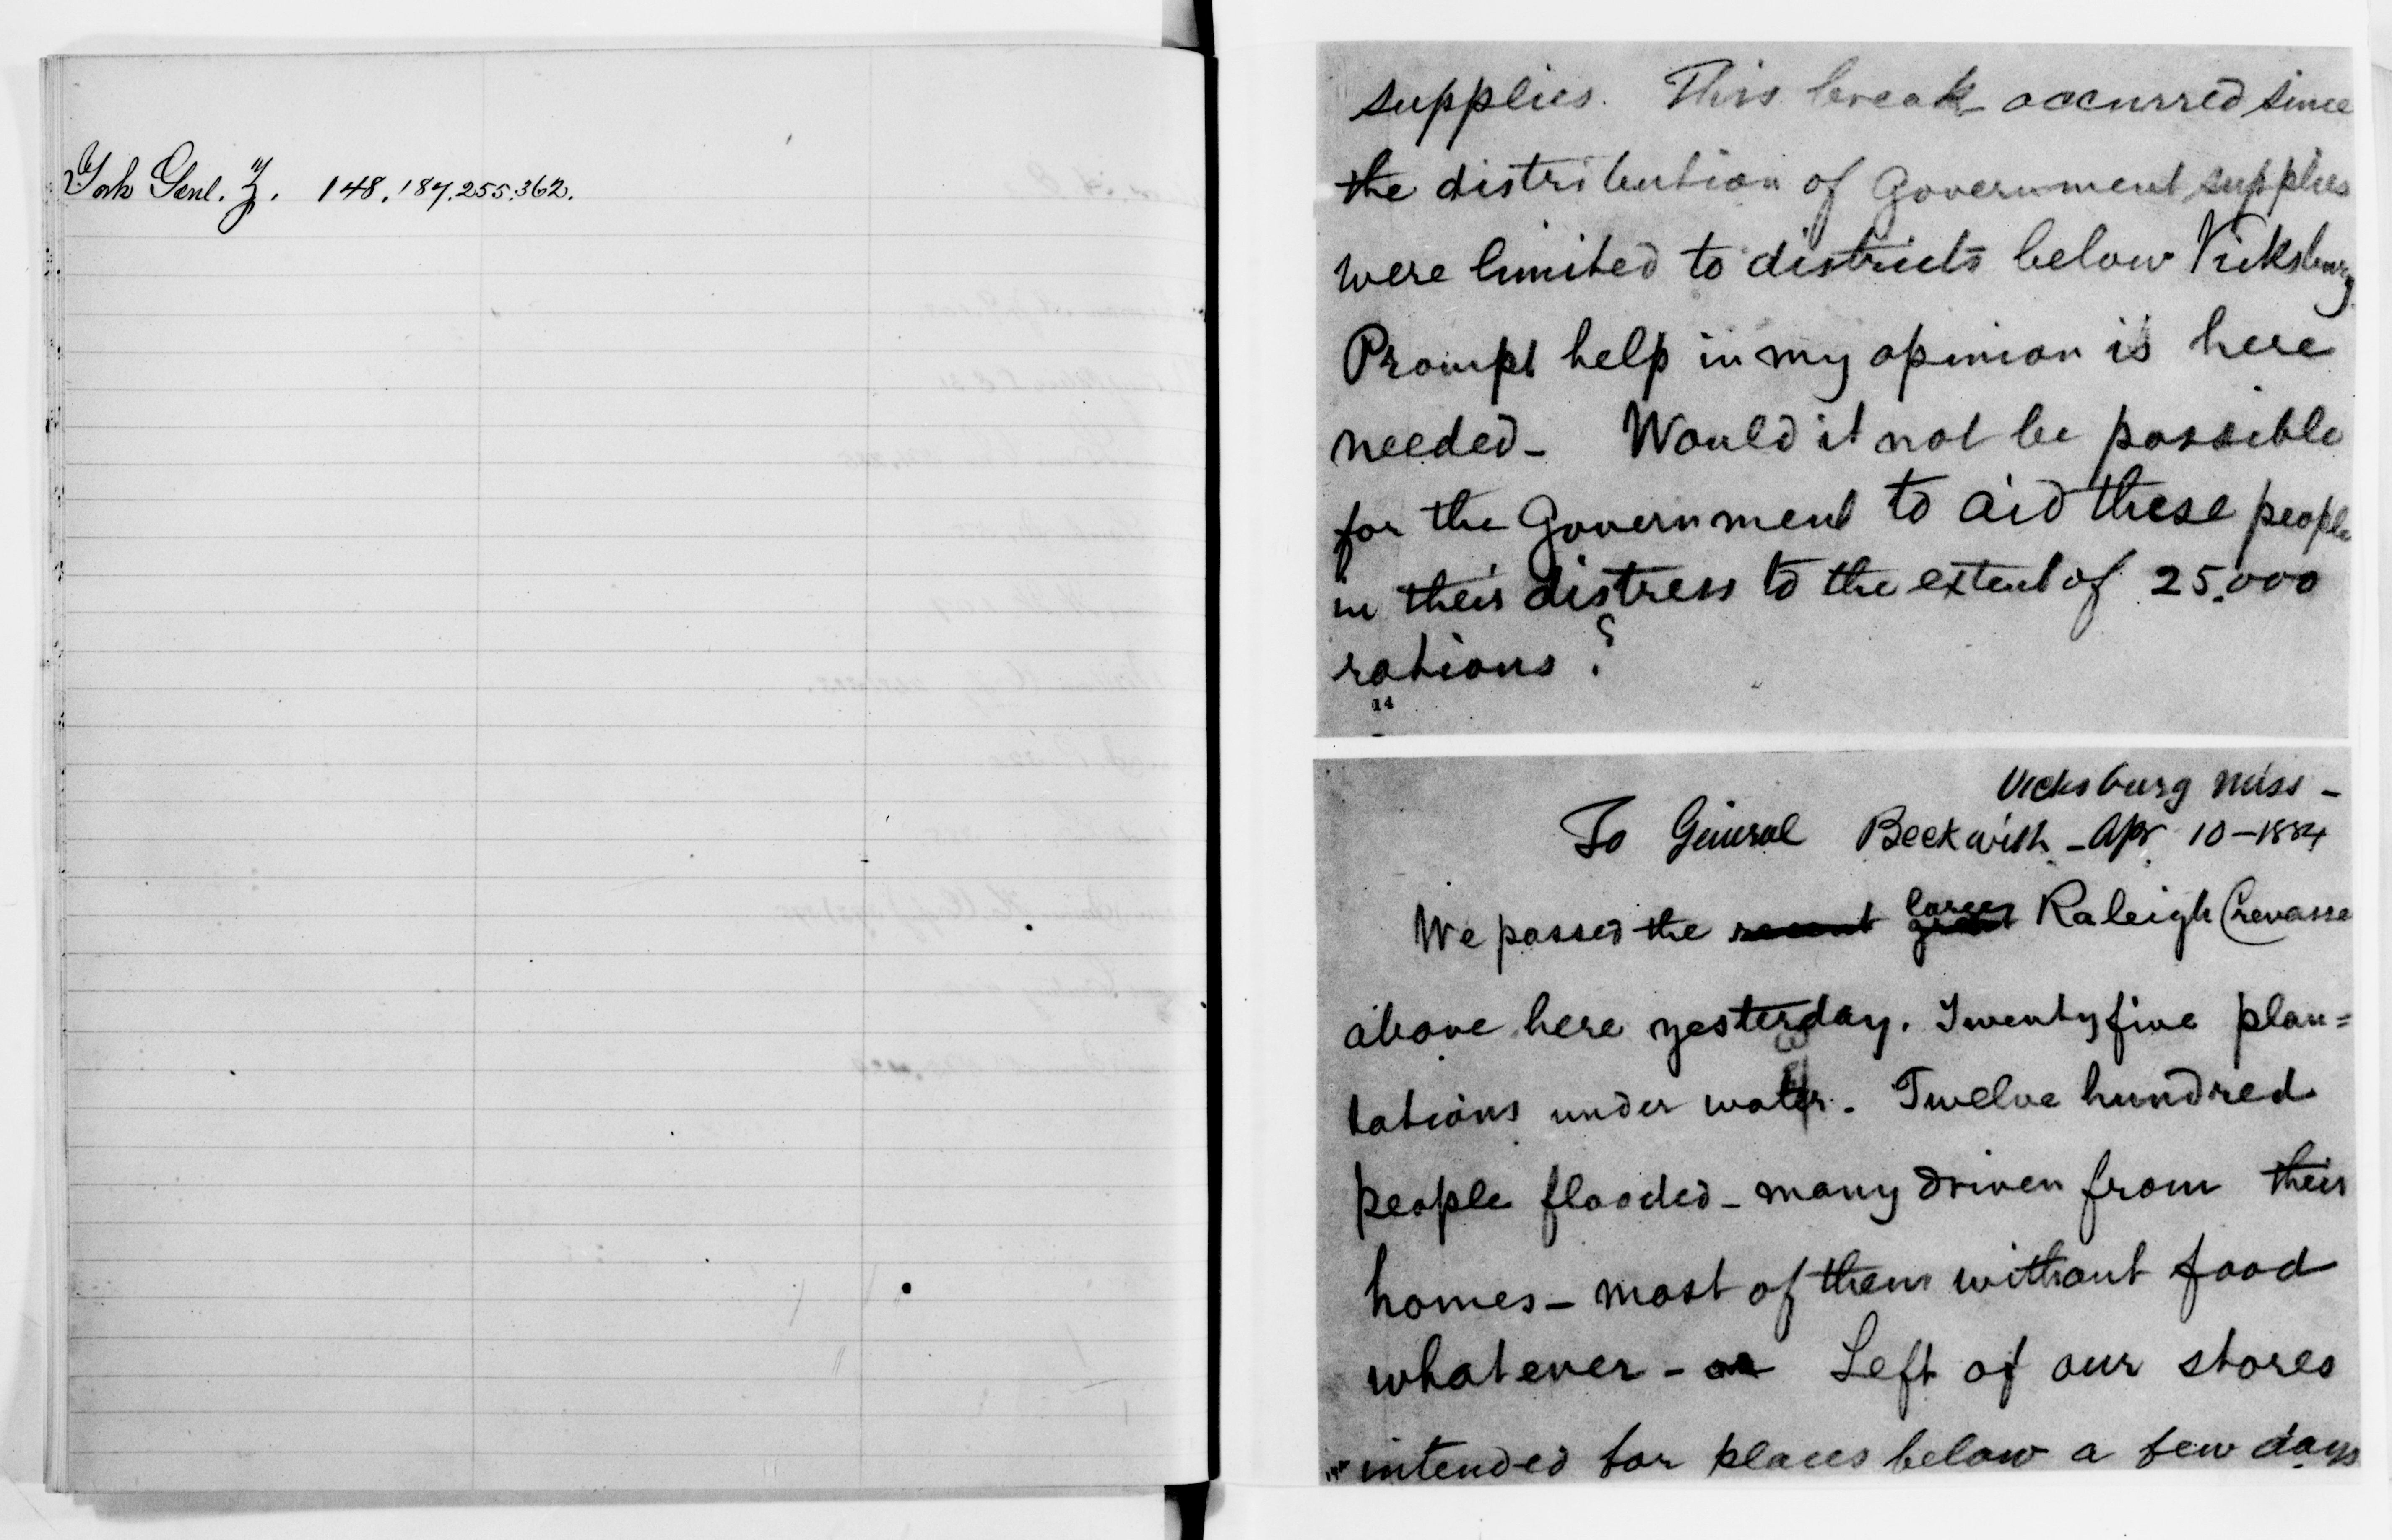 York Genl. Z. 148.187.255.362.
supplies. This break occurred since
the distribution of Government supplies
were limited to districts below Vicksburg
Prompt help in my opinion is here
needed – Would it not be possible
for the Government to aid these people
in their distress to the extent of 25.000
rations ?
14
Vicksburg Miss –
To General Beckwith – Apr 10 – 1884
We passed the recent great large Raleigh Crevasse
above here yesterday. Twenty five plan=
tations under water. Twelve hundred
people flooded – many driven from their
homes – most of them without food
whatever – Left of our stores
intended for places below a few days